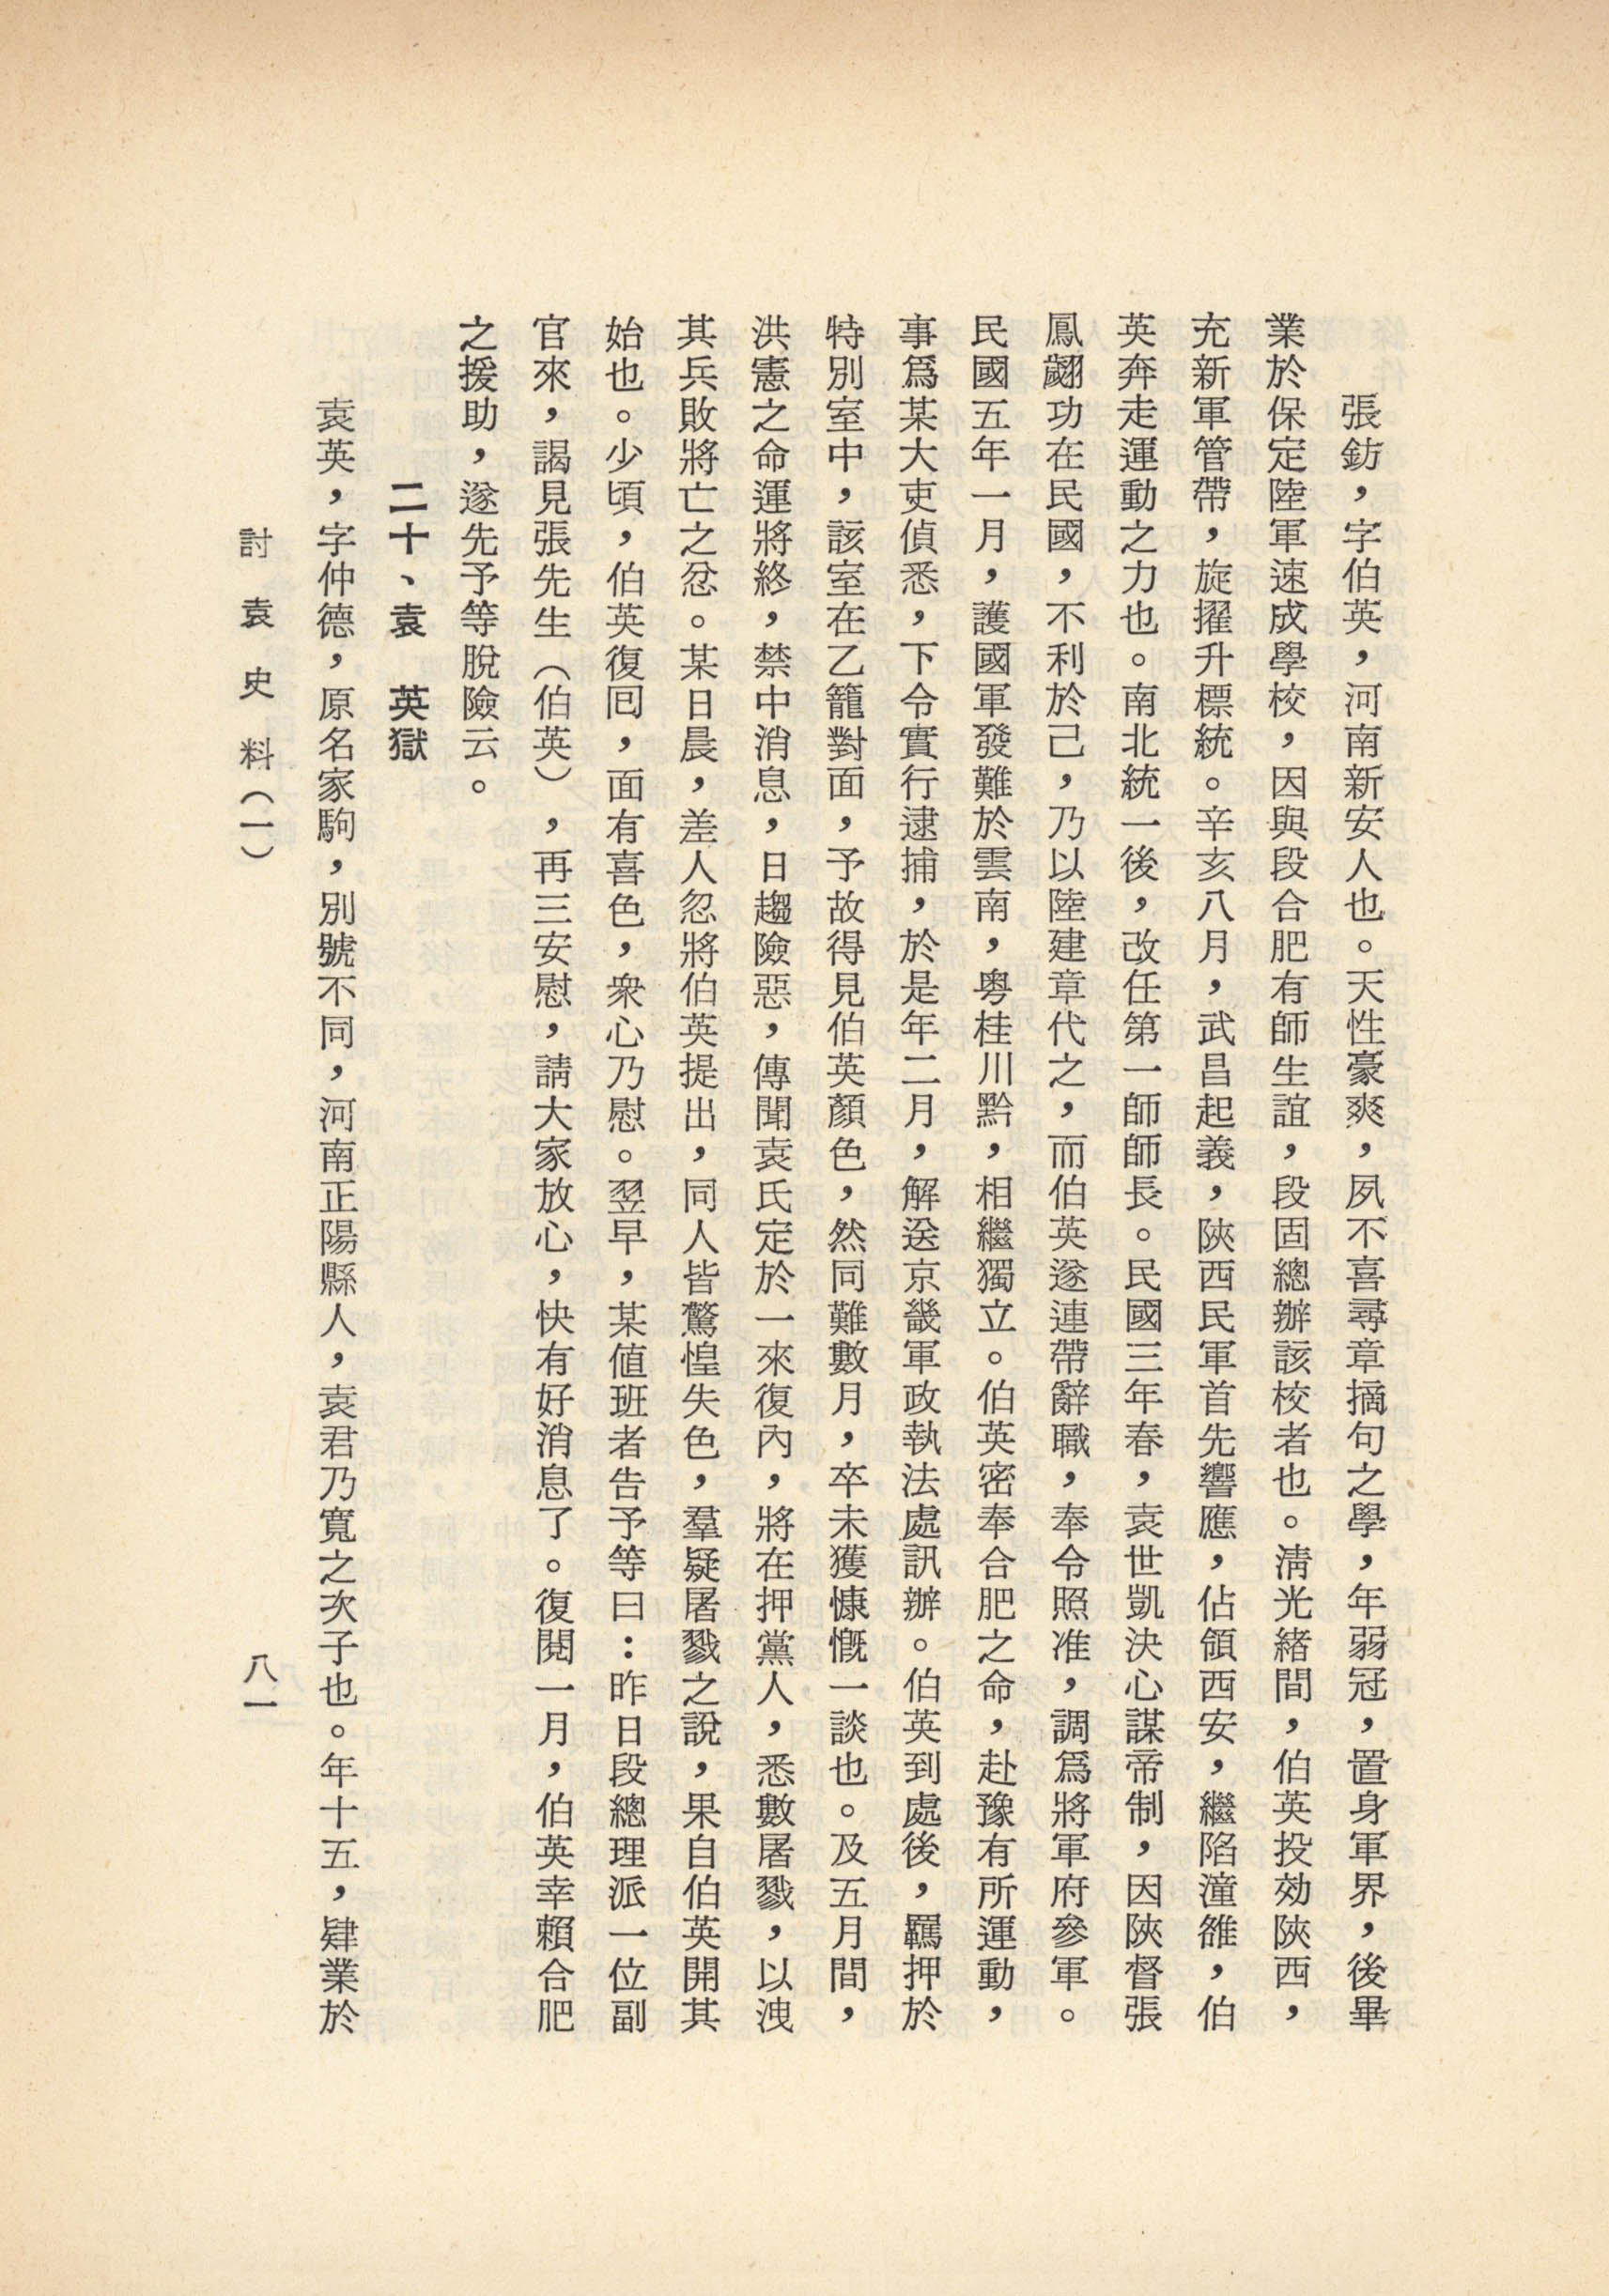 張鈁，字伯英，河南新安人也。天性豪爽，夙不喜尋章摘句之學，年弱冠，置身軍界，後畢
業於保定陸軍速成學校，因與段合肥有師生誼，段固總辦該校者也。淸光緒間，伯英投効陝西，
充新軍管帶，旋擢升標統。辛亥八月，武昌起義，陝西民軍首先響應，佔領西安，繼陷潼雒，伯
英奔走運動之力也。南北統一後，改任第一師師長。民國三年春，袁世凱決心謀帝制，因陝督張
鳳翽功在民國，不利於己，乃以陸建章代之，而伯英遂連帶辭職，奉令照准，調爲將軍府參軍。
民國五年一月，護國軍發難於雲南，粵桂川黔，相繼獨立。伯英密奉合肥之命，赴豫有所運動，
事爲某大吏偵悉，下令實行逮捕，於是年二月，解送京畿軍政執法處訊辦。伯英到處後，羈押於
特別室中，該室在乙籠對面，予故得見伯英顏色，然同難數月，卒未獲慷慨一談也。及五月間，
洪憲之命運將終，禁中消息，日趨險惡，傳聞袁氏定於一來復內，將在押黨人，悉數屠戮，以洩
其兵敗將亡之忿。某日晨，差人忽將伯英提出，同人皆驚惶失色，羣疑屠戮之說，果自伯英開其
始也。少頃，伯英復囘，面有喜色，衆心乃慰。翌早，某值班者告予等曰：昨日段總理派一位副
官來，謁見張先生（伯英），再三安慰，請大家放心，快有好消息了。復閱一月，伯英幸賴合肥
之援助，遂先予等脫險云。
二十、袁　英獄
袁英，字仲德，原名家駒，別號不同，河南正陽縣人，袁君乃寬之次子也。年十五，肄業於
討袁史料（一）
八一